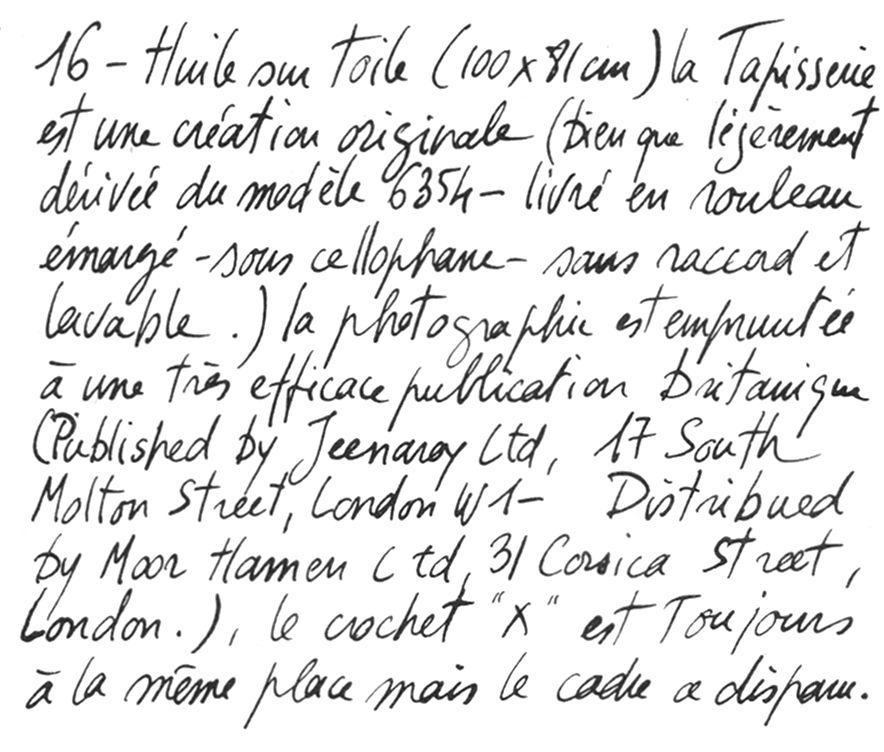 16 - Huile sur toile (100 x 81 cm) la Tapisserie
est une création originale (bien que légèrement
dérivée du modèle 6354 - livré en rouleau
émargé - sous cellophane - sans raccord et
lavable.) la photographie est empruntée
à une très efficace publication britanique
(Published by Jeenaroy Ltd, 17 South
Molton Street, London W1 - Distribued
by Moor Hamen Ltd, 31 Corsica Street,
London.), le crochet "X" est Toujours
à la même place mais le cadre a disparu.